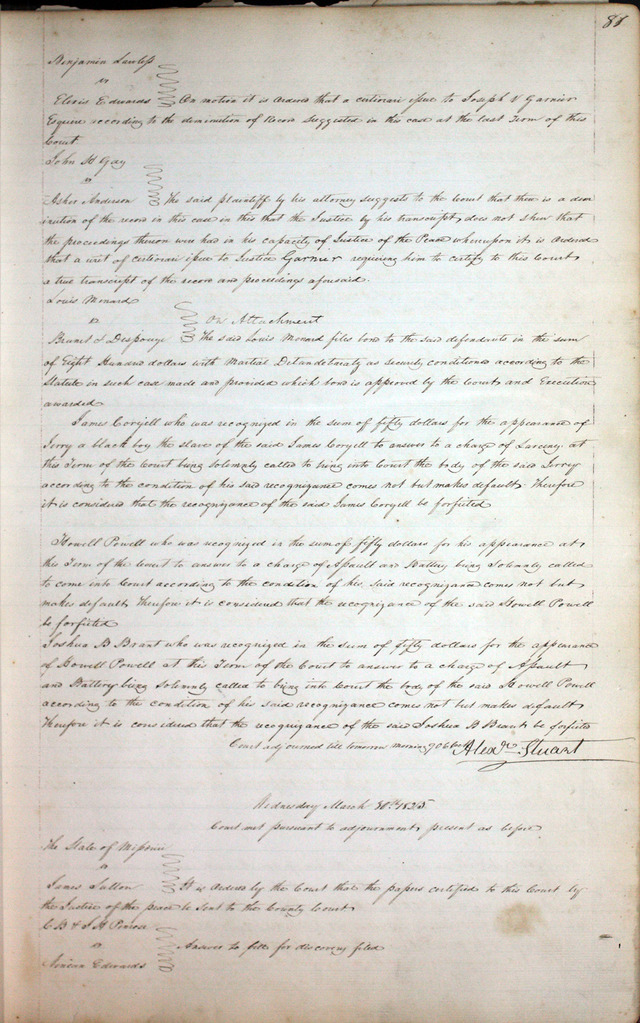 81
Benjamin Lawless
vs
Elexis Edwards On motion it is ordered that a certiorari issue to Joseph V Garnier
Esquire according to the diminution of Record suggested in this case at the last Term of this
Court
John H Gay
vs
Asher Anderson The said plaintiff by his attorney suggests to the Court that there is a dim
inution of the record in this case in this that the Justice by his transcript does not shew that
the proceedings thereon were had in his capacity of Justice of the Peace whereupon it is ordered
that a writ of certiorari issue to Justice Garnier requiring him to certify to this Court
a true transcript of the record and proceedings aforesaid.
Louis Menard
vs On Attachment
Brunet & Despouy The said Louis Menard files bond to the said defendants in the sum
of Eight Hundred dollars with Martial as security conditioned according to the
Statute in such case made and provided which bond is approved by the Court and Execution
awarded
James Coryell who was recognized in the sum of fifty dollars for the appearance of
Jerry a black boy the slave of the said James Coryell to answer to a charge of Larceny at
this Term of the Court being solemnly called to bring into Court the body of the said Jerrey
according to the condition of his said recognizance comes not but makes default. Therefore
it is considered that the recognizance of the said James Coryell be forfeited
Howell Powell who was recognized in the sum of fifty dollars for his appearance at
this Term of the Court to answer to a charge of Assault and Battery being Solemnly called
to come into Court according to the condition of his said recognizance comes not but
makes default, Therefore it is considered that the recognizance of the said Howell Powell
be forfeited
Joshua B Brant who was recognized in the sum of fifty dollars for the appearance
of Howell Powell at this Term of the Court to answer to a charge of Assault
and Battery being Solemnly called to bring into Court the body of the said Howell Powell
according to the condition of his said recognizance comes not but makes default
Therefore it is considered that the recognizance of the said Joshua B Brant be forfeited
Court adjourned till tomorrow morning 9 OClock Alexr Stuart
Wednesday March 30th 1825
Court met pursuant to adjournment, present as before
The State of Missouri
vs
James Sutton It is ordered by the Court that the papers certified to this Court by
the Justice of the peace be sent to the County Court
C B & J H Penrose
vs Answer to bill for discovery filed
Ninian Edwards